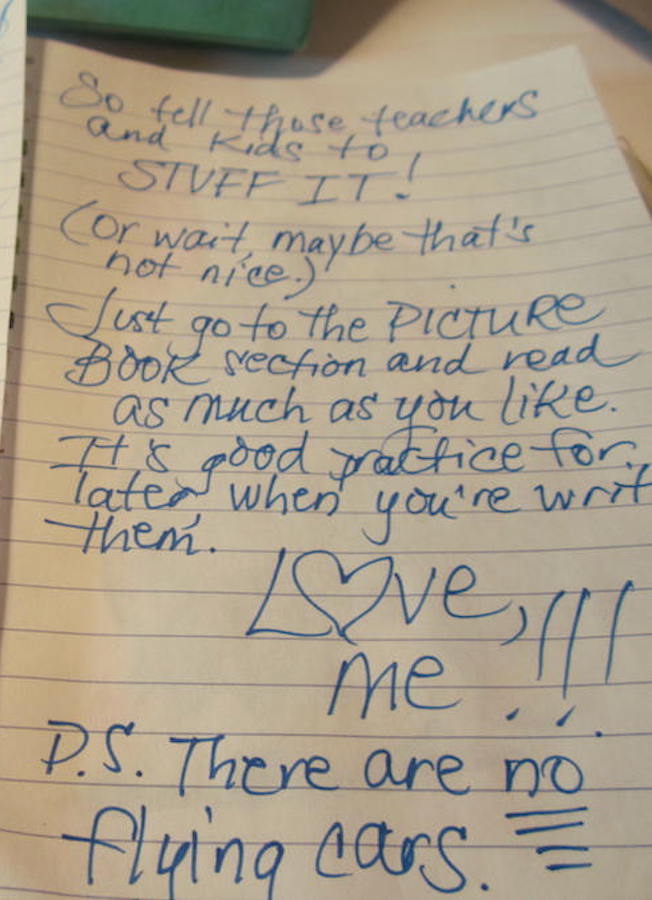 So tell those teachers
and kids to
STUFF IT!
(Or wait, maybe that's
not nice.)
Just go to the PICTURE
BOOK section and read
as much as you like.
It's good practice for
later when you're writ
them.
L♡ve,
me!!!
P.S. There are no
flying cars.